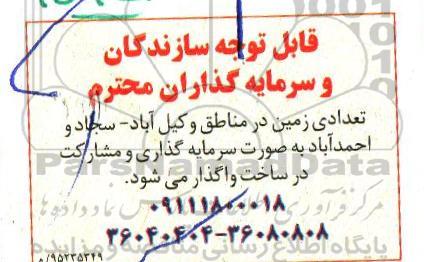 قابل توجه سازندگان
و سرمایه گذاران محترم
تعدادی زمین در مناطق وکیل آباد- سجاد و
احمدآباد به صورت سرمایه گذاری و مشارکت
در ساخت واگذار می شود.
۰۹۱۱۱۸۰۰۰۱۸
۳۶۰۴۰۴۰۴-۳۶۰۸۰۸۰۸
پایگاه اطلاع رسانی مناقصه و مزایده
۹۵۲۳۵۳۴۹/م
ParsNamadData